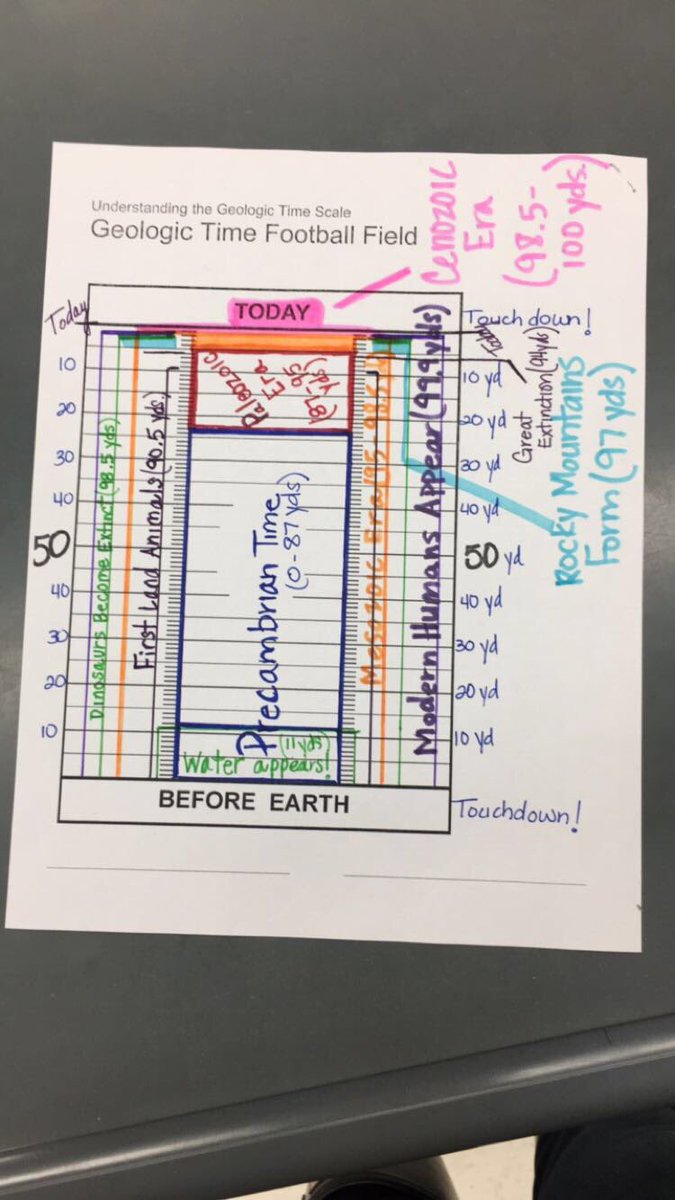 Understanding the Geologic Time Scale
Geologic Time Football Field
Cenozoic
Era
(98.5-
100 yds.)
Today
TODAY
Touchdown!
Paleozoic
Era
(87-95
yds)
Great
Extinction (94yds)
Rocky Mountains
Form (97 yds)
Dinosaurs Become Extinct (98.5 yds)
First Land Animals (90.5 yds.)
Precambrian Time
(0-87 yds)
Mesozoic Era (95-98.5
Modern Humans Appear (99.9 yds)
10
20
30
40
50
40
30
20
10
10 yd
20 yd
30 yd
40 yd
50 yd
40 yd
30 yd
20 yd
10 yd
(11 yds)
Water appears!
BEFORE EARTH
Touchdown!